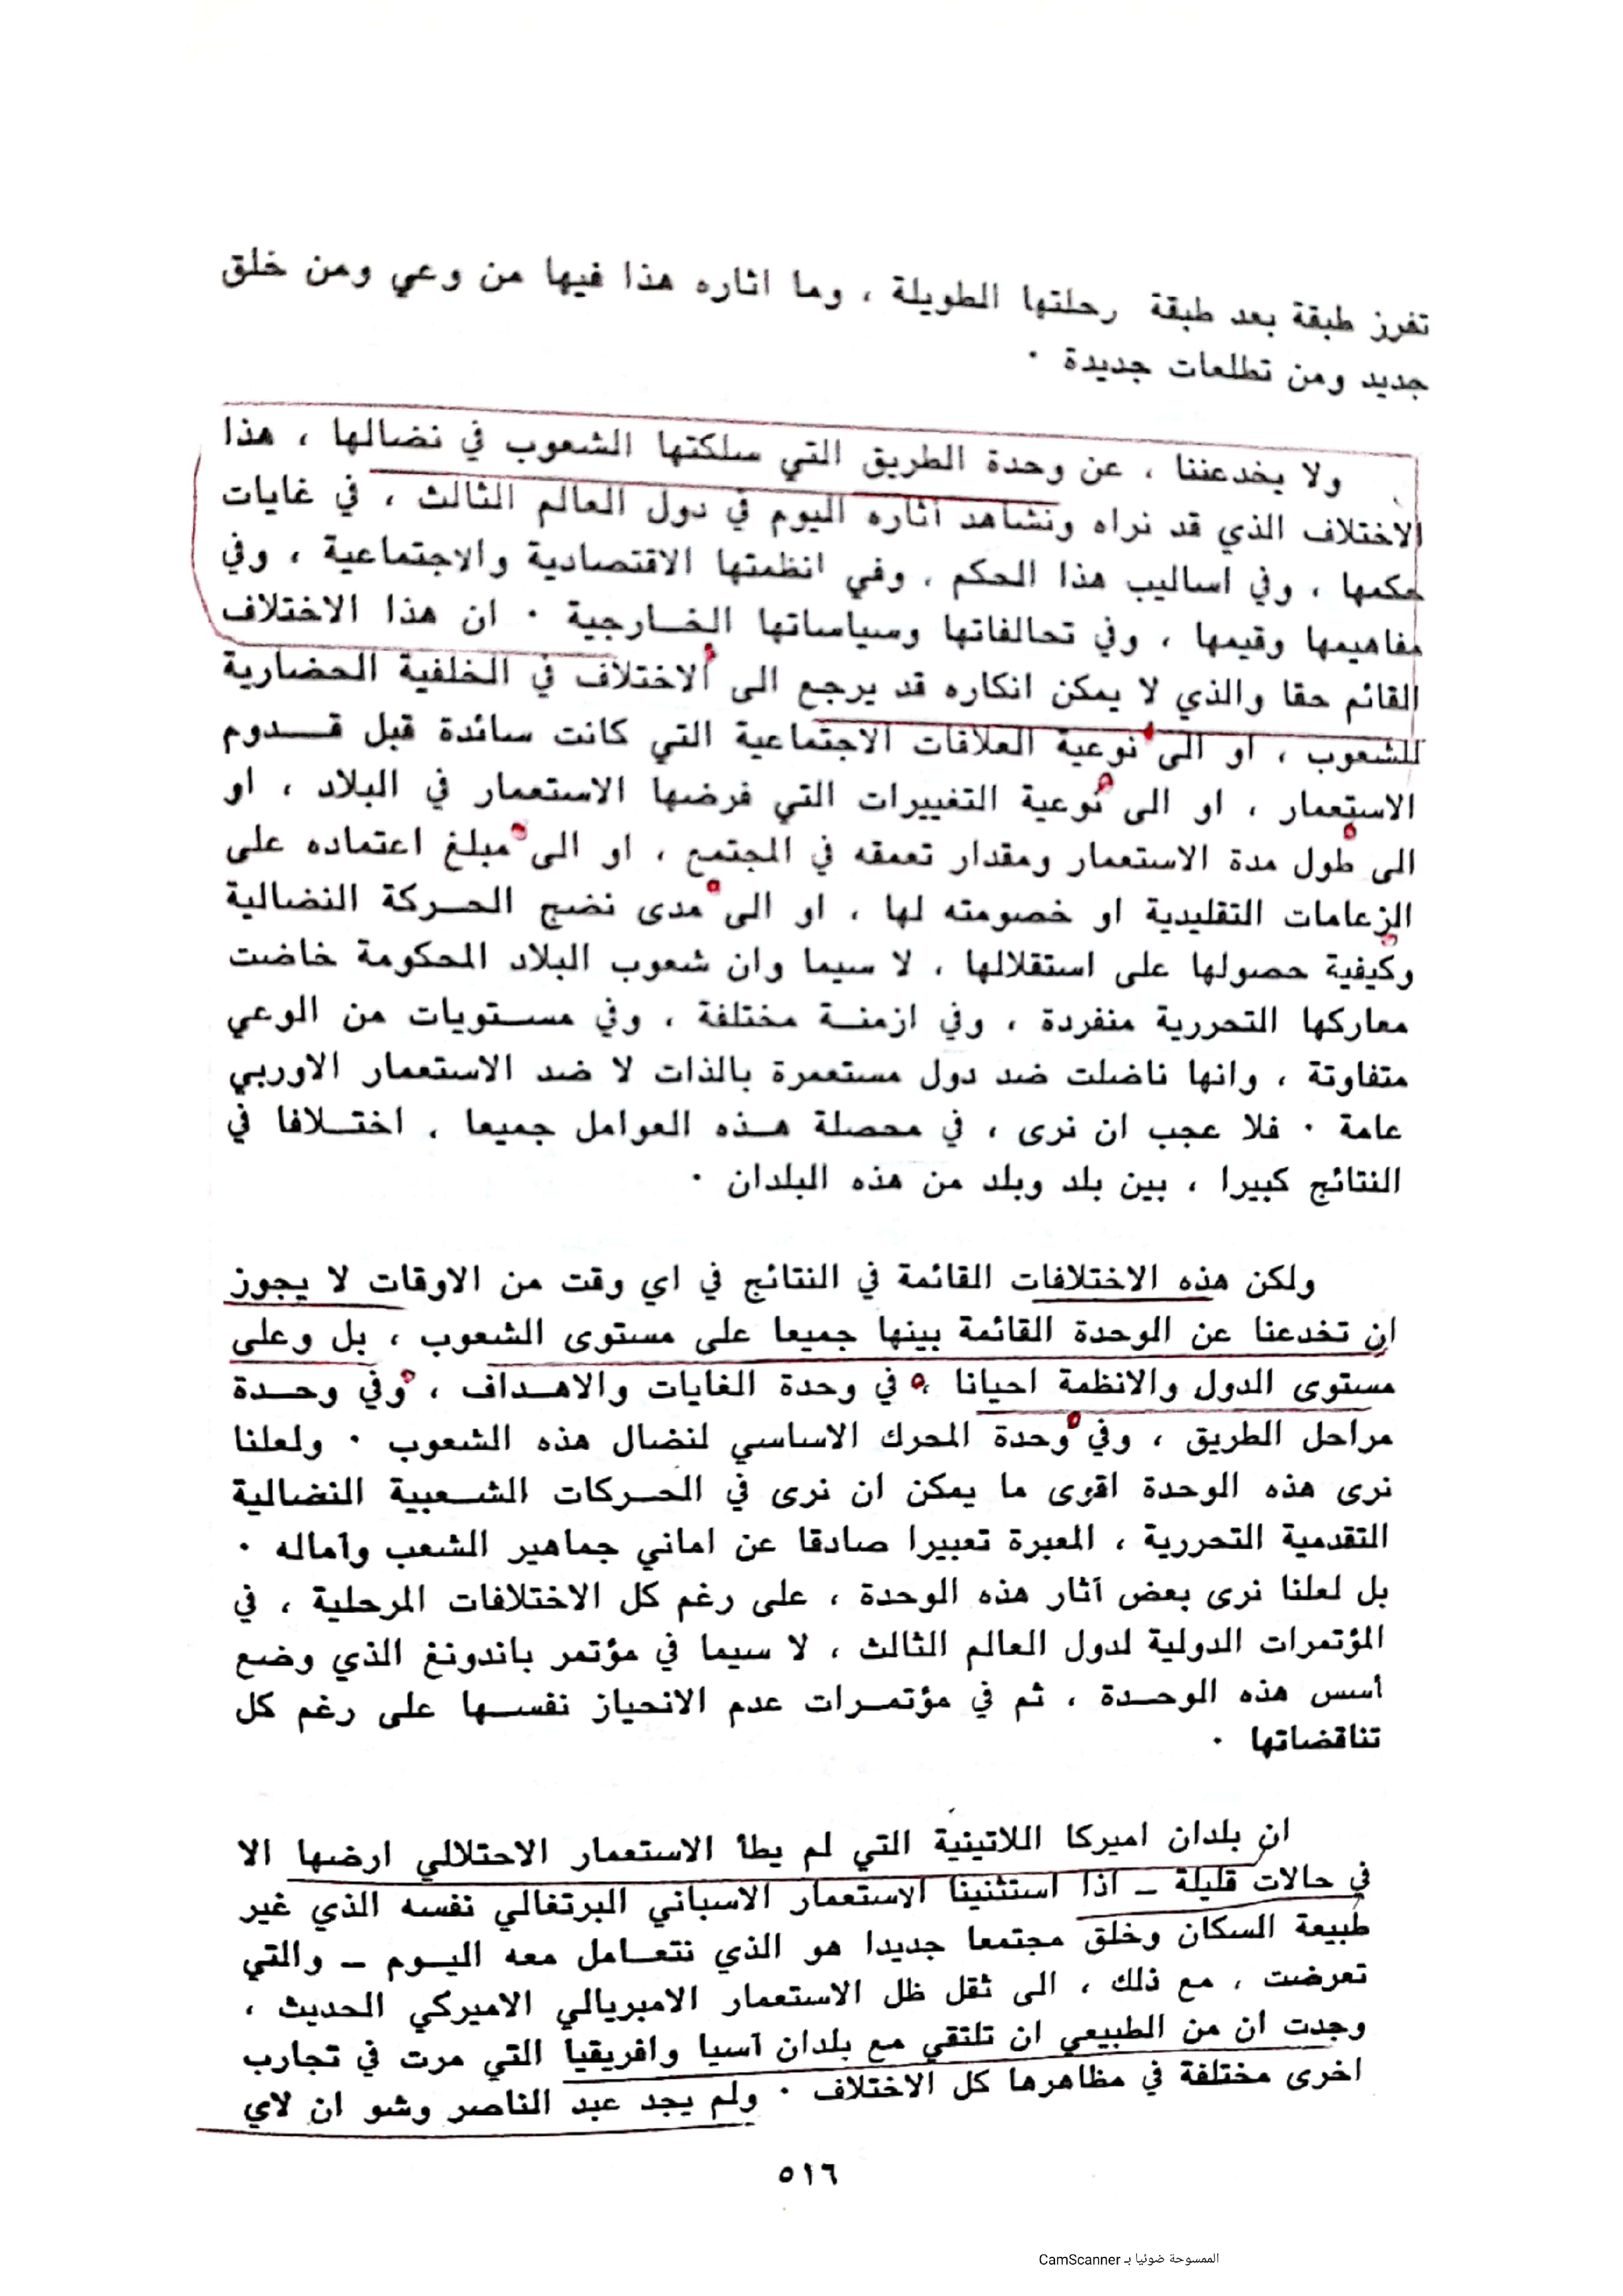 تفرز طبقة بعد طبقة رحلتها الطويلة ، وما اثاره هذا فيها من وعي ومن خلق
جديد ومن تطلعات جديدة ٠
ولا يخدعننا ، عن وحدة الطريق التي سلكتها الشعوب في نضالها ، هذا
الاختلاف الذي قد نراه ونشاهد آثاره اليوم في دول العالم الثالث ، في غايات
حكمها ، وفي اساليب هذا الحكم ، وفي انظمتها الاقتصادية والاجتماعية ، وفي
مفاهيمها وقيمها ، وفي تحالفاتها وسياساتها الخــارجية ٠ ان هذا الاختلاف
القائم حقا والذي لا يمكن انكاره قد يرجع الى الاختلاف في الخلفية الحضارية
للشعوب ، او الى نوعية العلاقات الاجتماعية التي كانت سائدة قبل قــدوم
الاستعمار ، او الى نوعية التغييرات التي فرضها الاستعمار في البلاد ، او
الى طول مدة الاستعمار ومقدار تعمقه في المجتمع ، او الى مبلغ اعتماده على
الزعامات التقليدية او خصومته لها ، او الى مدى نضج الحــركة النضالية
وكيفية حصولها على استقلالها ، لا سيما وان شعوب البلاد المحكومة خاضت
معاركها التحررية منفردة ، وفي ازمنــة مختلفة ، وفي مســتويات من الوعي
متفاوتة ، وانها ناضلت ضد دول مستعمرة بالذات لا ضد الاستعمار الاوربي
عامة ٠ فلا عجب ان نرى ، في محصلة هــذه العوامل جميعا ، اختــلافا في
النتائج كبيرا ، بين بلد وبلد من هذه البلدان ٠
ولكن هذه الاختلافات القائمة في النتائج في اي وقت من الاوقات لا يجوز
ان تخدعنا عن الوحدة القائمة بينها جميعا على مستوى الشعوب ، بل وعلى
مستوى الدول والانظمة احيانا ، في وحدة الغايات والاهــداف ، وفي وحــدة
مراحل الطريق ، وفي وحدة المحرك الاساسي لنضال هذه الشعوب ٠ ولعلنا
نرى هذه الوحدة اقوى ما يمكن ان نرى في الحــركات الشــعبية النضالية
التقدمية التحررية ، المعبرة تعبيرا صادقا عن اماني جماهير الشعب وآماله ٠
بل لعلنا نرى بعض آثار هذه الوحدة ، على رغم كل الاختلافات المرحلية ، في
المؤتمرات الدولية لدول العالم الثالث ، لا سيما في مؤتمر باندونغ الذي وضع
أسس هذه الوحــدة ، ثم في مؤتمــرات عدم الانحياز نفســها على رغم كل
تناقضاتها ٠
ان بلدان اميركا اللاتينية التي لم يطأ الاستعمار الاحتلالي ارضها الا
في حالات قليلة ــ اذا استثنينا الاستعمار الاسباني البرتغالي نفسه الذي غير
طبيعة السكان وخلق مجتمعا جديدا هو الذي نتعــامل معه اليــوم ــ والتي
تعرضت ، مع ذلك ، الى ثقل ظل الاستعمار الامبريالي الاميركي الحديث ،
وجدت ان من الطبيعي ان تلتقي مع بلدان آسيا وافريقيا التي مرت في تجارب
اخرى مختلفة في مظاهرها كل الاختلاف ٠ ولم يجد عبد الناصر وشو ان لاي
٥١٦
الممسوحة ضوئيا بـ CamScanner